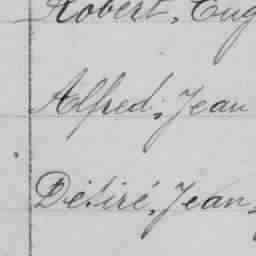 Robert, Eug
Alfred, Jean
Désiré, Jean,